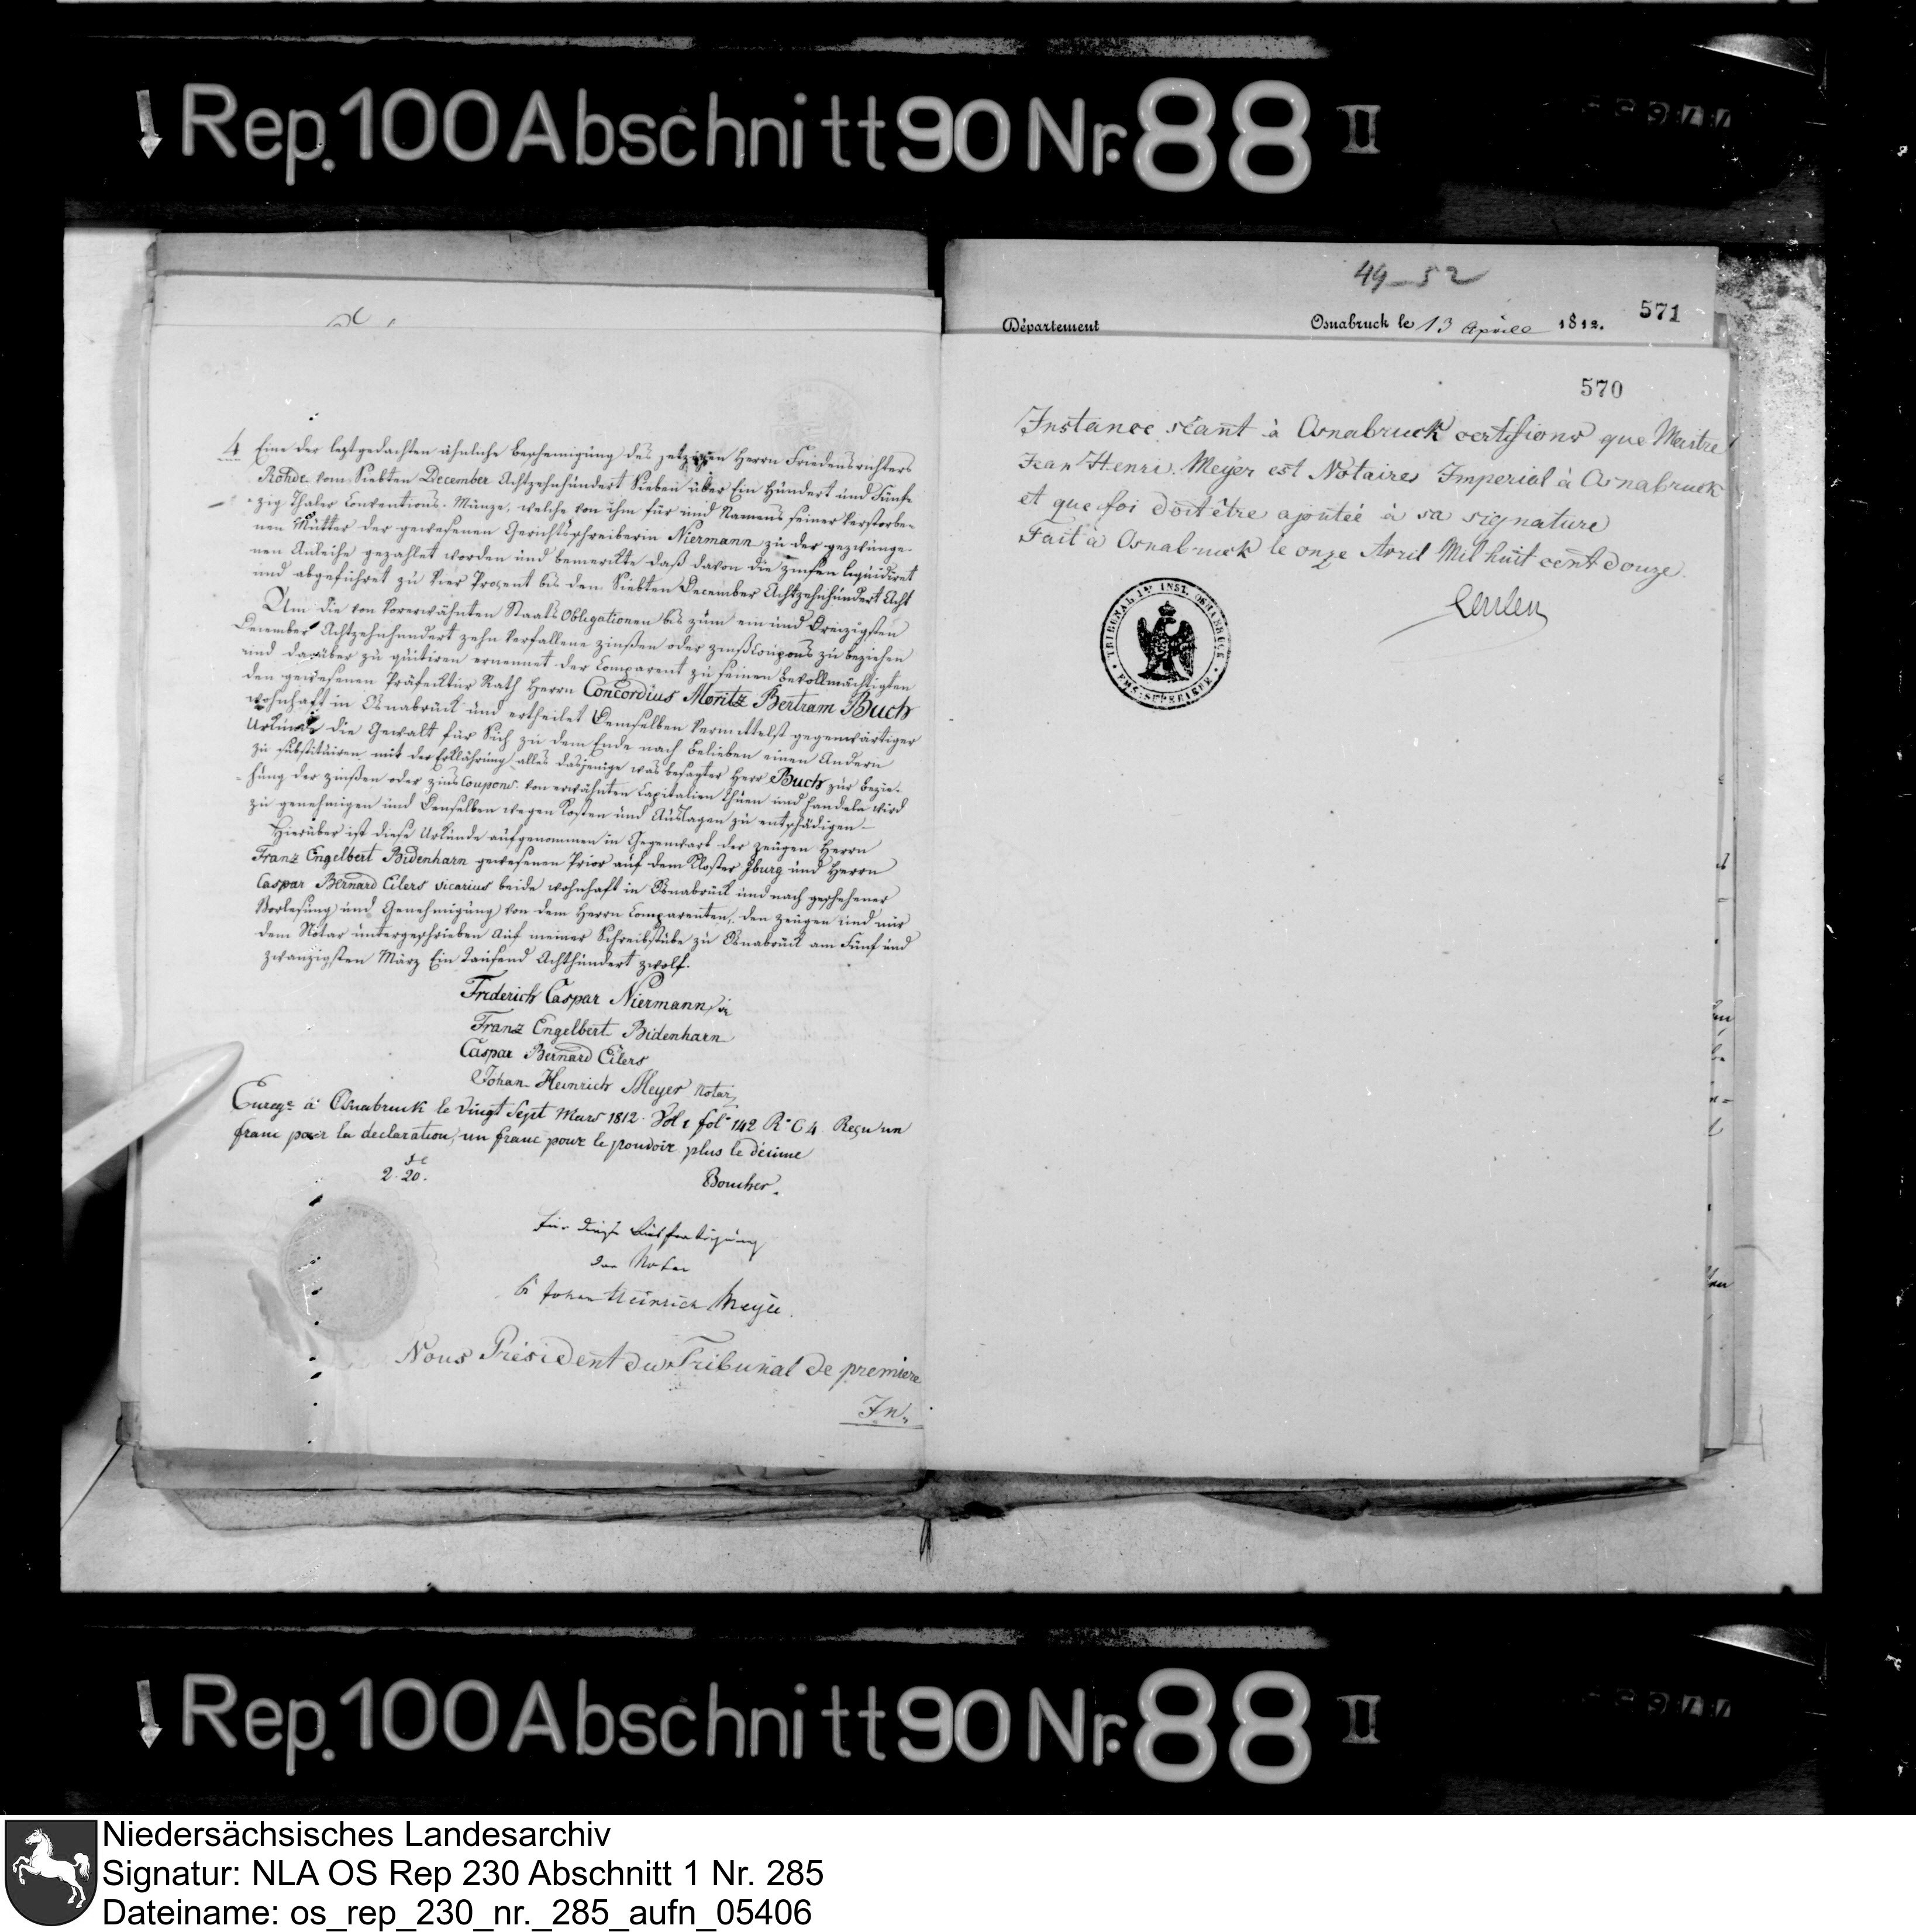 Rep. 100 Abschnitt 90 Nr. 88 II
4 Eine der leztgedachten ähnliche bescheinigung des jetzigen Herrn Friedensrichters
Rohde vom Siebten December Achtzehnhundert Sieben über Ein Hundert und Fünf
zig Thaler Conventions-Münze, welche von ihm für und Namens seiner verstorbe-
nen Mutter der gewesenen Gerichtschreiberin Niermann zu der gezwunge-
nen Anleihe gezahlet worden und bemerkte daß davon die zinsen liquidiret
und abgeführet zu vier Prozent bis den Siebten December Achtzehnhundert Acht
Um die von vorerwähnten Staats Obligationen bis zum ein und Dreizigsten
December Achtzehnhundert zehn verfallene zinßen oder zinßCoupons zu beziehen
und darüber zu quitiren ernennet der Comparent zu seinen bevollmächtigten
den gewesenen Präfektur Rath Herrn Concordius Moritz Bertram Buch
wohnhaft in Osnabrück und ertheilet Demselben vermittelst gegenwärtiger
Urkunde die Gewalt für Sich zu dem Ende nach belieben einen Andern
zu substituiren mit der Erklährung alles dasjenige was besagter Herr Buch zur bezie-
hung der zinßen oder zins Coupons von erwähnten Capitalien thuen und handeln wird
zu genehmigen und Denselben wegen Kosten und Auslagen zu entschädigen –
Hierüber ist diese Urkunde aufgenommen in Gegenwart der zeugen Herrn
Franz Engelbert Bidenharn gewesenen Prior auf dem Kloster Iburg und Herrn
Caspar Bernard Eilers vicarius beide wohnhaft in Osnabrück und nach geschehener
Vorlesung und Genehmigung von dem Herrn Comparenten, den zeugen und mir
dem Notar unterschrieben Auf meiner Schreibstube zu Osnabrück am Fünf und
zwanzigsten März Ein tausend Achthundert zwolf.
Frederich Caspar Niermann
Franz Engelbert Bidenharn
Caspar Bernard Eilers
Johan Heinrich Meyer Notar
Enregé à Osnabruck le Vingt Sept Mars 1812. Vol 1 fol 142 R° C 4 Reçu un
franc pour la declaration, un franc pour le pouvoir plus le décime
2. 20.
Boucher.
Für diese Ausfertigung
der Notar
Johan Heinrich Meyer.
Nous Président du Tribunal de premiere
In„
49–52
Département
Osnabruck le 13 Aprile 1812.
571
570
Instance séant à Osnabruck certifions que Maitre
Jean Henri Meyer est Notaire Imperial à Osnabruck
et que foi doit être ajoutée à sa signature
Fait à Osnabruck le onze Avril Mil huit cent douze.
TRIBUNAL 1ER INST. OSNABRUCK
EMS-SUPERIEUR
Rep. 100 Abschnitt 90 Nr. 88 II
Niedersächsisches Landesarchiv
Signatur: NLA OS Rep 230 Abschnitt 1 Nr. 285
Dateiname: os_rep_230_nr._285_aufn_05406